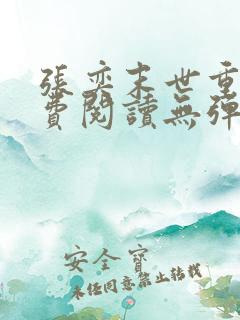 張奕末世重
費閱讀無彈
安全寶
未經同意禁止轉載